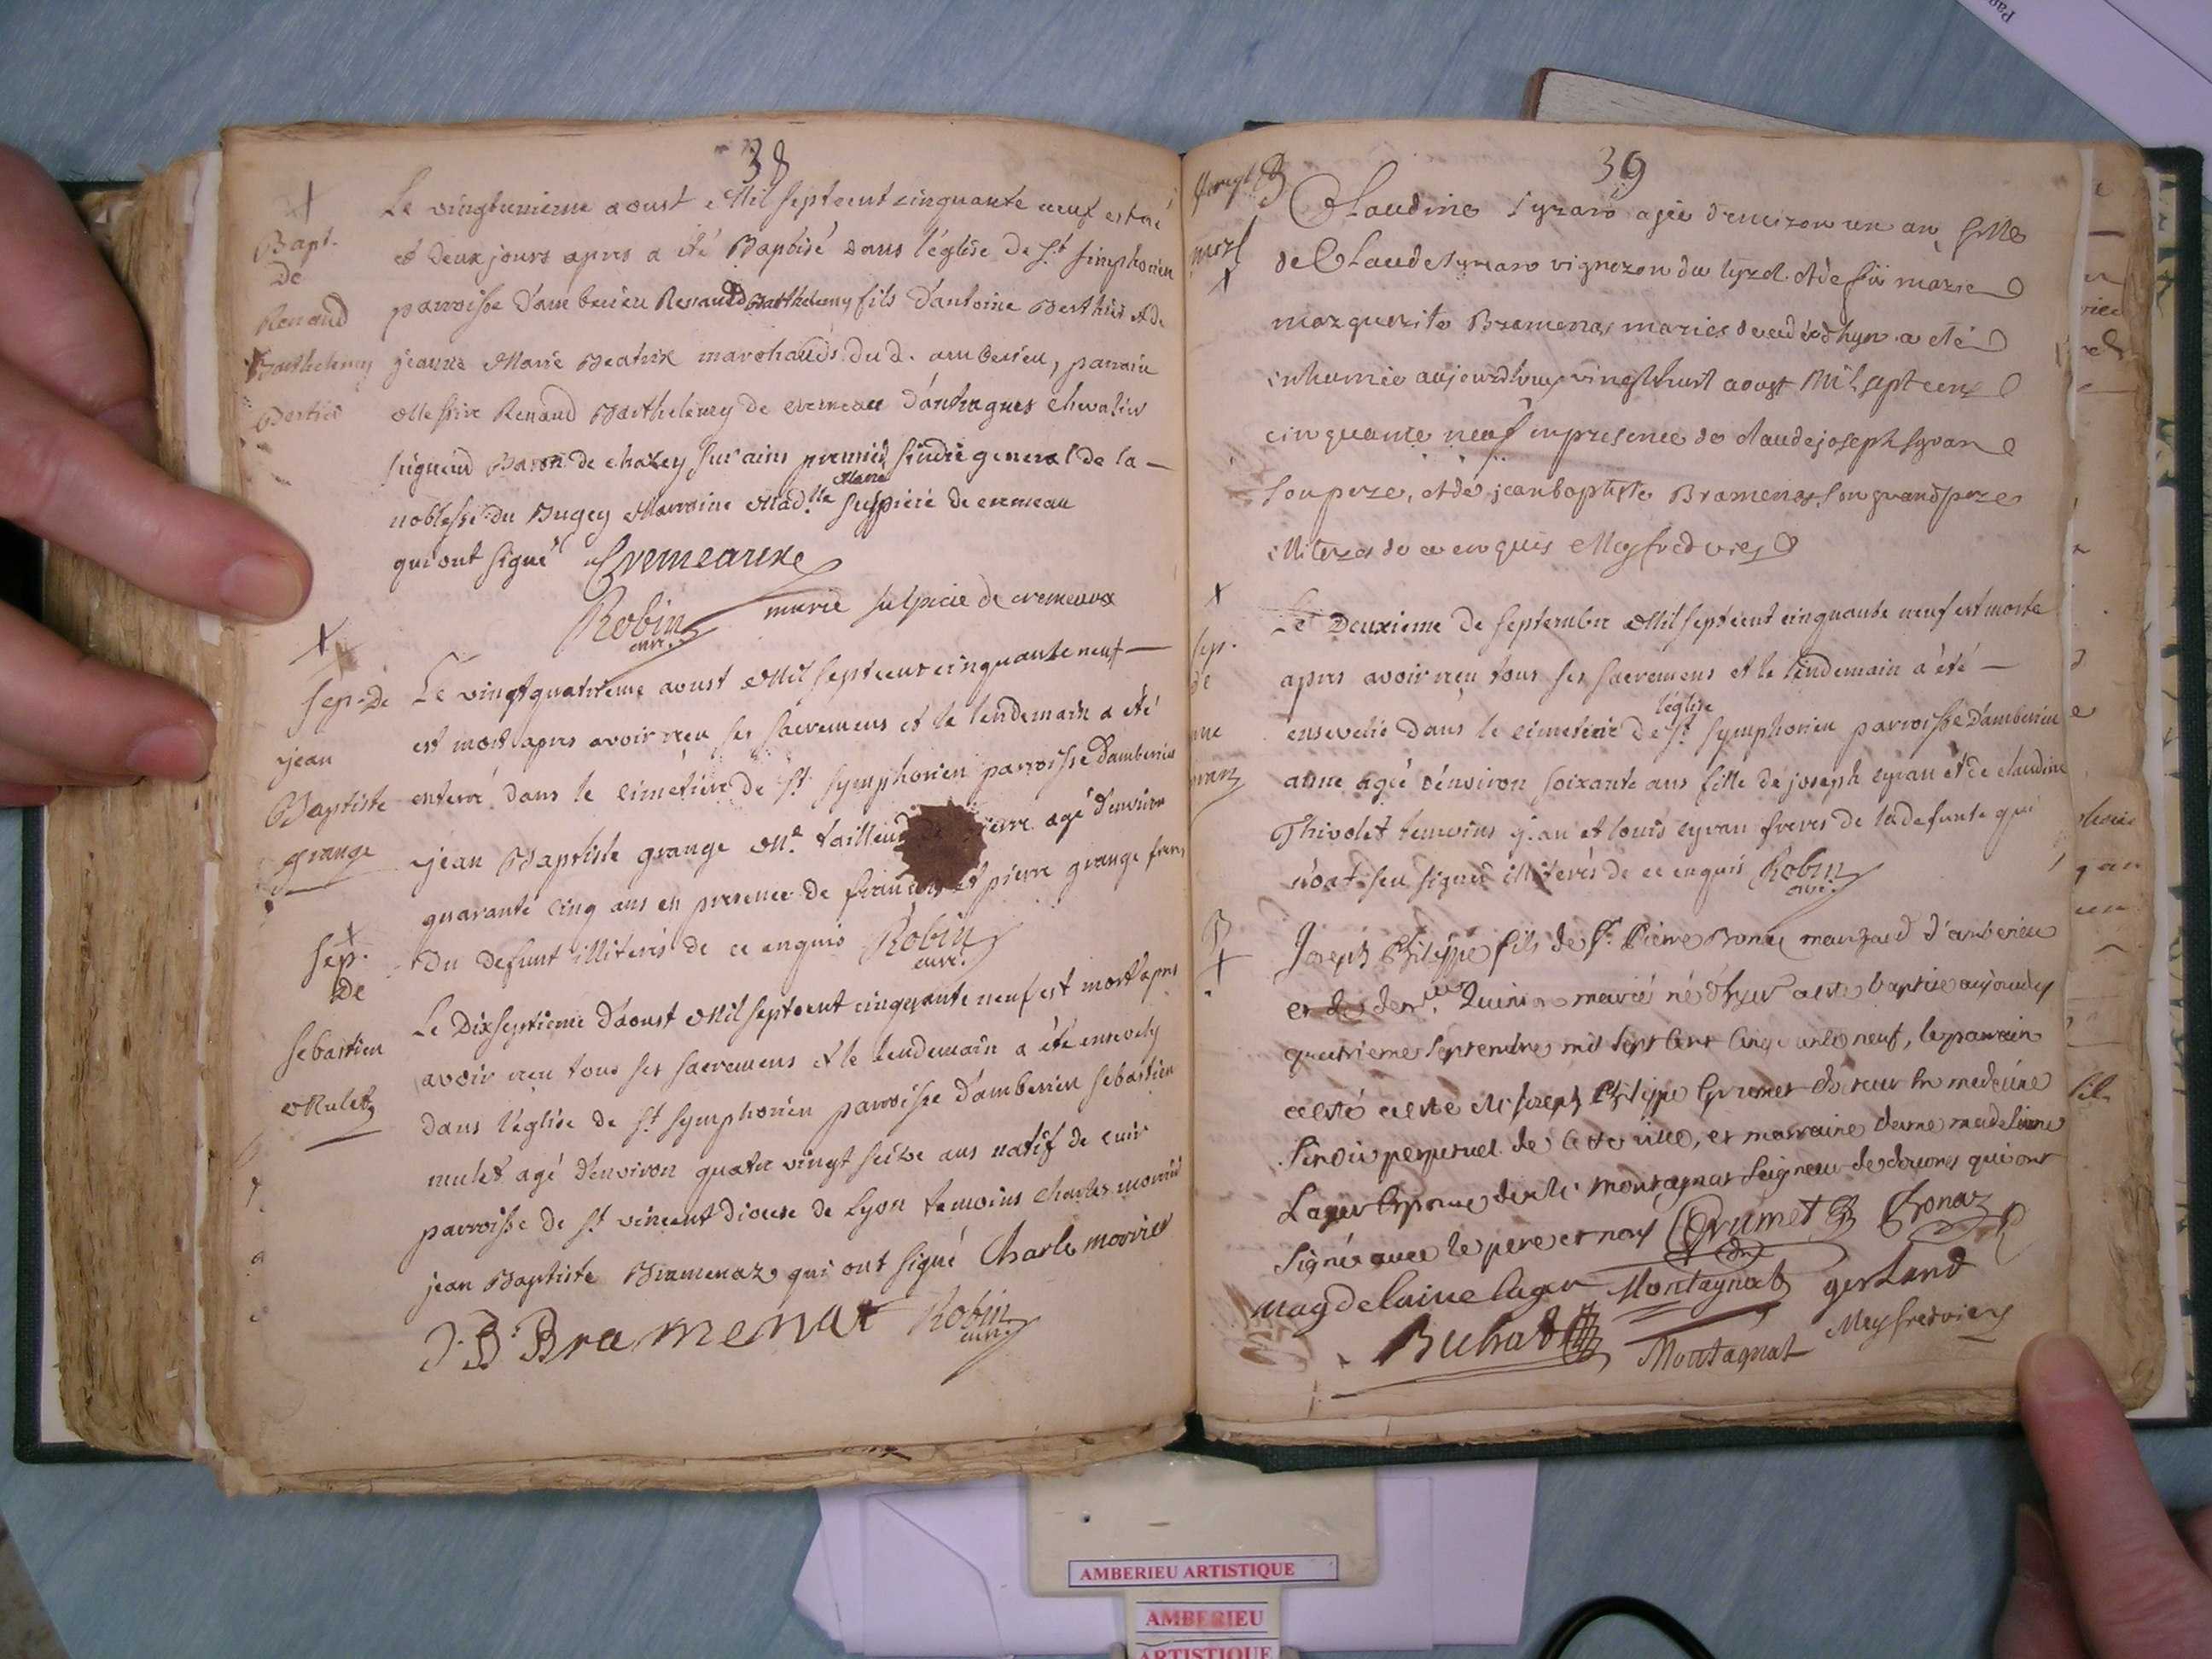 38
Bapt.
de
Renaud
Barthelemy
Bertier
Le vingtunieme aoust Mil septcent cinquante neuf est né
et deux jours apres a été Baptisé dans l'église de St simphorien
parroisse d'amberieu Renaud Barthelemy fils d'antoine Berthier et de
jeanne Marie Beatrix marchands du d. amberieu, parrain
Messire Renaud Barthelemy de cremeau d'antragues chevalier
seigneur Baron de chazey sur ains premier sindic general de la
noblesse du Bugey Marraine Mad.lle Marie sulpicie de cremeau
qui ont signé Cremeaux
Robin curé. marie sulpicie de cremeaux
sep. de
jean
Baptiste
grange
Le vingtquatrieme aoust Mil septcent cinquante neuf
est mort apres avoir reçu ses sacremens et le lendemain a été
enterré dans le cimetiere de St symphorien parroisse d'amberieu
jean Baptiste grange Me tailleur de pierre agé d'environ
quarante cinq ans en presence de francois et pierre grange freres
du defunt illiterés de ce enquis Robin
curé.
sep.
de
sebastien
Mulet
Le Dixseptieme d'aoust Mil septcent cinquante neuf est mort apres
avoir reçu tous ses sacremens et le lendemain a été ensevely
dans l'église de St symphorien parroisse d'amberieu sebastien
mulet agé d'environ quatre vingt seize ans natif de cuir
parroisse de St vincent diocese de Lyon temoins charles morrier
jean Baptiste Bramenaz qui ont signé Charle morrier
J. B. Bramenat Robin
curé.
39
Claudine Syran agée d'environ un an fille
de Claude Syran vigneron du et de marie
marguerite Bramenas mariés decedée d'hyer a eté
inhumée aujourdhuy vingthuit aoust Mil sept cent
cinquante neuf en presence de claude joseph Syran
son pere, et de jean baptiste Bramenas son grand pere
illiteres de ce enquis Meyfredviers
sep.
de
Le Deuxieme de septembre Mil septcent cinquante neuf est morte
apres avoir reçu tous ses sacremens et le lendemain a été
ensevelie dans le cimetiere de l'église St symphorien parroisse d'amberieu
anne agée d'environ soixante ans fille de joseph syran et de claudine
Thivolet temoins jean et louis syran freres de la defunte qui
n'ont seu signer illiterés de ce enquis Robin
curé.
B
Joseph Philippe fils de Sr. Pierre Bonaz marchand d'amberieu
et de dem.lle Quinson mariés né d'hyer a eté baptisé aujourdhuy
quatrieme septembre mil sept cent cinquante neuf, le parrain
a esté a esté Mr joseph Philippe Grumet docteur en medecine
sindic perpetuel de cette ville, et marraine dame madelaine
Lager Epouse de Mr montagnat seigneur de douvres qui ont
signé avec le pere et nous Grumet Bonaz
Magdelaine lager Montagnat gerland
Buhat Montagnat Meyfredviers
AMBERIEU ARTISTIQUE
AMBERIEU
ARTISTIQUE